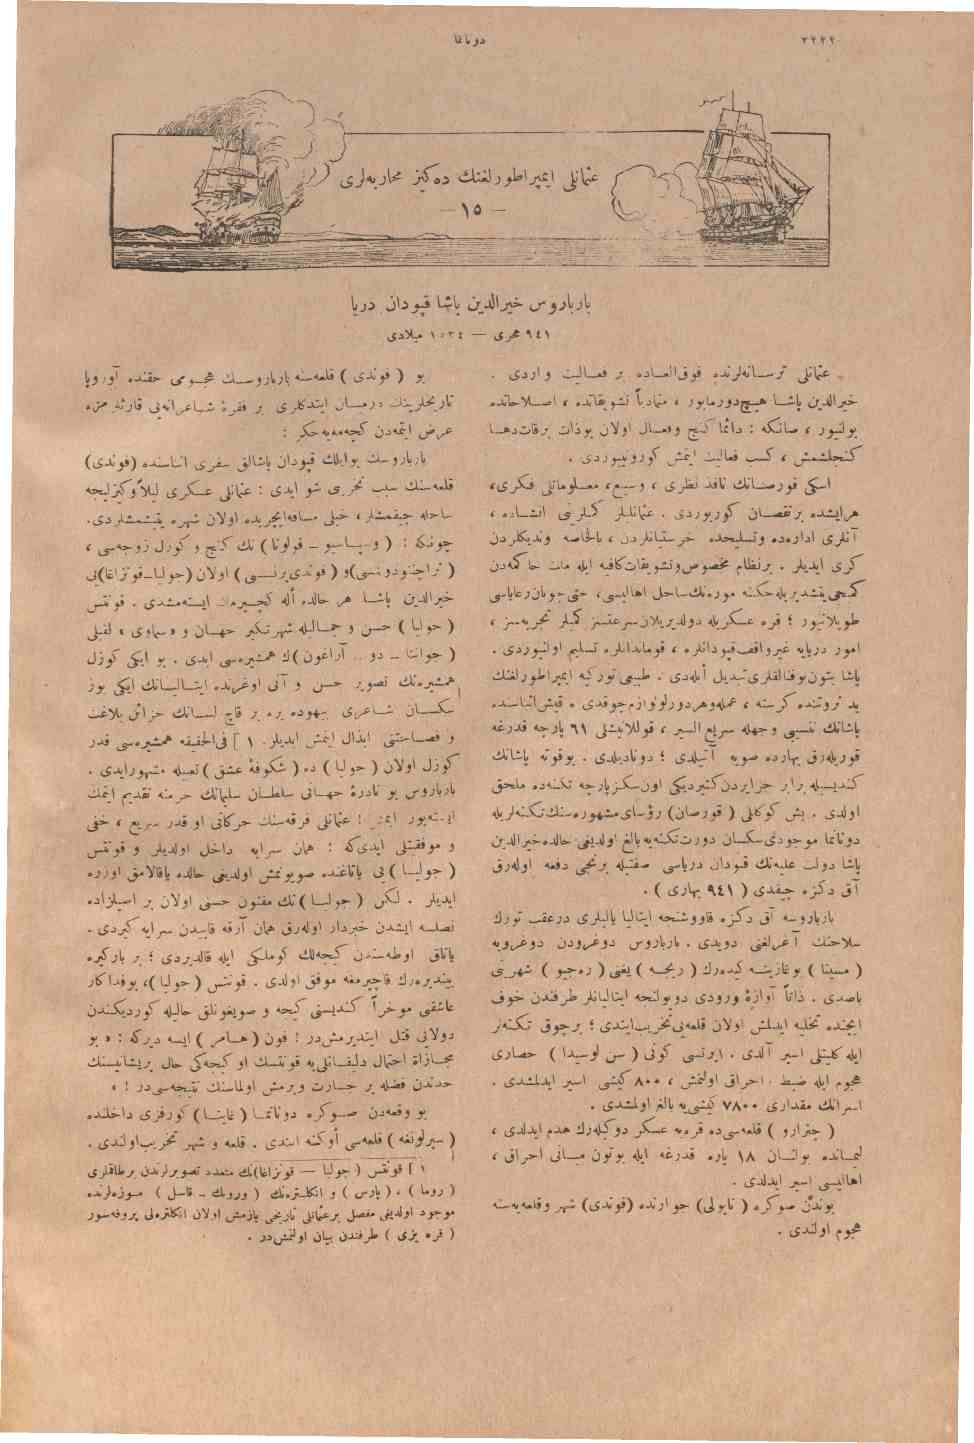 دونانما
عثمانلی ایمپراطورلغنك ده‌كیز محاربه‌لری
— ١٥ —
بارباروس خیرالدین پاشا قپودان دریا
٩٤١ هجری — ١٥٣٤ میلادی
عثمانلی ترسانه‌لرنده فوق‌العاده بر فعالیت واردی .
خیرالدین پاشا هیچ‌دورمایور ، متمادیاً تشویقاتده ، اصلاحاتده
بولنیور ، صانكه : دائما كنج وفعال اولان بوذات برقات‌دها
كنجلشمش ، كسب فعالیت ایتمش كورونیوردی .
اسكی قورصانك نافذ نظری ، وسیع ، معلوماتلی فكری،
هرایشده برنقصان كوریوردی . عثمانلیلر كمیلرینی انشاده ،
آنلری اداره‌ده وتسلیحده خرستیانلردن ، بالخاصه وندیكلردن
كری ایدیلر . برنظام مخصوص وتشویقات‌كافیه ایله
كمیجی یتشدیریله‌جكنه موره‌نك‌ساحل اهالیسی، حتی‌چوبان‌رعایاسی
طوپلانیور ؛ قره عسكریله دولدیریلان‌سرعتسز كمیلر تجربه‌سز ،
امور دریایه غیرواقف‌قپودانلره ، قوماندانلره تسلیم اولنیوردی .
پاشا بتون‌بوفنالقلری‌تبدیل ایله‌دی . طبیعی توركیه ایمپراطورلغنك
ید ثروتنده كرسته ، عمله‌وهردورلولوازم‌چوقدی . قیش‌اثناسنده
پاشانك نفسی وجهله سریع السیر ، قوللانیشلی ٦١ پارچه قدرغه
قوریله‌رق بهارده صویه آتیلدی ؛ دونادیلدی . بوقوته پاشانك
كندیسیله برابر جزایردن‌كتیردیكی اون‌سكز پارچه تكنه‌ده ملحق
اولدی . بش كوكللی ( قورصان ) رؤسای مشهوره‌سنك‌تكنه‌لریله
دونانما موجودی‌سكسان دورت‌تكنه‌یه بالغ اولدیغی حالده خیرالدین
پاشا دولت علیه‌نك قپودان دریاسی صفتیله برنجی دفعه اوله‌رق
آق دكزه چیقدی ( ٩٤١ بهاری ) .
بارباروسه آق دكزه قاووشنجه ایتالیا یالیلری درعقب تورك
سلاحنك آغرلغنی دویدی . بارباروس دوغرودن دوغرویه
( مسینا ) بوغازینه كیده‌رك ( ریجه ) یعنی ( ره‌جیو ) شهرینی
باصدی . ذاتاً آوازۀ ورودی دویولنجه ایتالیانلر طرفندن خوف
ایچنده تخلیه ایدلمش اولان قلعه‌یی‌تخریب‌ایتدی ؛ برچوق تكنه‌لر
ایله كلیتلی اسیر آلدی . ایرتسی كونی ( سن لوسیدا ) حصاری
هجوم ایله ضبط ، احراق اولنمش ، ٨٠٠ كیشی اسیر ایدلمشدی .
اسرانك مقداری ٧٨٠٠ كیشی‌یه بالغ اولمشدی .
( چترارو ) قلعه‌سی‌ده قره‌یه عسكر دوكیله‌رك هدم ایدلدی ،
لیمانده بولنان ١٨ پاره قدرغه ایله بوتون مبانی احراق ،
اهالیسی اسیر ایدلدی .
بوندن صوكره ( ناپولی ) جوارنده (فوندی) شهر وقلعه‌یه‌سنه
هجوم اولندی .
بو ( فوندی ) قلعه‌سنه بارباروسك هجومی حقنده آوروپا
تاریخلرینك درمیان ایتدكلری بر فقرۀ شاعرانه‌یی قارئلرمزه
عرض ایتمه‌دن كچه‌میه‌جكز :
بارباروسك بوایلك قپودان پاشالق سفری اثناسنده (فوندی)
قلعه‌سنك سبب تخریبی شو ایدی : عثمانلی عسكری لیلاً‌وكیزلیجه
ساحله چیقمشلر، خیلی مسافه‌ایچریده اولان شهره یتیشمشلردی.
چونكه : ( وسپاسیو – قولونا ) نك كنج و كوزل زوجه‌سی ،
( تراجتودوشسی)و ( فوندی‌پرنسسی ) اولان (جولیا–قونزاغا)یی
خیرالدین پاشا هر حالده أله كچیرمك ایسته‌مشدی . قونتس
( جولیا ) حسن و جمالیله شهرتكیر جهان و « سماوی » لقبلی
( جوانینا – دو – آراغون)ك همشیره‌سی ایدی . بو ایكی كوزل
همشیره‌نك تصویر حسن و آنی اوغرنده ایتالیانك ایكی یوز
سكسان شاعری بیهوده یره بر قاچ لسانك خزائن بلاغت
و فصاحتنی ابذال ایتمش ایدیلر. ١ ] فی‌الحقیقه همشیره‌سی قدر
كوزل اولان ( جولیا ) ده ( شكوفۀ عشق ) تعبیله مشهورایدی .
بارباروس بو نادرۀ جهانی سلطان سلیمانك حرمنه تقدیم ایتمك
ایسته‌یور ایمش ! عثمانلی فرقه‌سنك حركاتی او قدر سریع ، خفی
و موفقیتلی ایدی‌كه : همان سرایه داخل اولدیلر و قونتس
( جولیا ) یی یاتاغنده صویونمش اولدیغی حالده یاقالامق اوزره
ایدیلر . لكن ( جولیا )نك مفتون حسنی اولان بر اصیلزاده
نصلسه ایشدن خبردار اوله‌رق همان آرقه قاپیدن سرایه كیردی .
یاتاق اوطه‌سندن كیجه‌لك كوملكی ایله قالدیردی ؛ بر باركیره
بیندیره‌رك قاچیرمغه موفق اولدی . قونتس ( جولیا )، بوفداكار
عاشقی موخراً كندیسنی كیجه و صویغونلق حالیله كوردیكندن
دولایی قتل ایتدیرمش‌در ! فون ( هامر ) ایسه دیركه : « بو
مجازاة احتمال دلیقانلی‌یه قونتسك او كیجه‌كی حال پریشانیسنك
حدندن فضله بر جسارت ویرمش اولماسنك نتیجه‌سی‌در ! »
بو وقعه‌دن صوكره دونانما ( غایتا ) كورفزی داخلنده
( سپرلونغه ) قلعه‌سی أوكنه كلدی . قلعه و شهر تخریب‌اولندی .
١ ] قونتس ( جولیا — قونزاغا)نك متعدد تصویرلرندن برطاقلری
( روما ) ، ( پارس ) و انكلتره‌نك ( ورویك – قاسل ) موزه‌لرنده
موجود اولدیغی مفصل برعثمانلی تاریخی یازمش اولان انكلتره‌لی پروفه‌سور
( قره یزی ) طرفندن بیان اولنمش‌در .